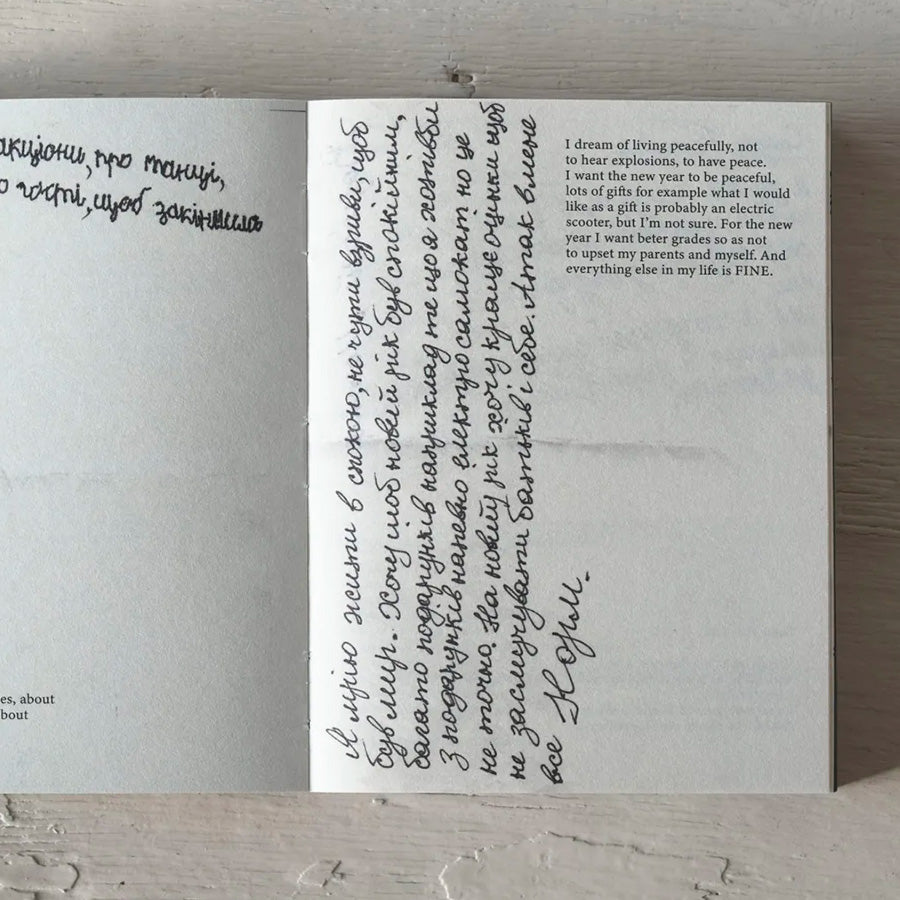 акціони, про танці,
гості, щоб закінчилась
es, about
bout
Я мрію жити в спокою, не чути взриви, щоб
був мир. Хочу шоб новий рік був спокійним,
багато подарунків наприклад те що я хотів би
з подарунків напевно електро самокат но це
не точно. На новий рік хочу краще оцінки щоб
не засмучувати батьків і себе. А так в мене
все Норм.
I dream of living peacefully, not
to hear explosions, to have peace.
I want the new year to be peaceful,
lots of gifts for example what I would
like as a gift is probably an electric
scooter, but I'm not sure. For the new
year I want beter grades so as not
to upset my parents and myself. And
everything else in my life is FINE.